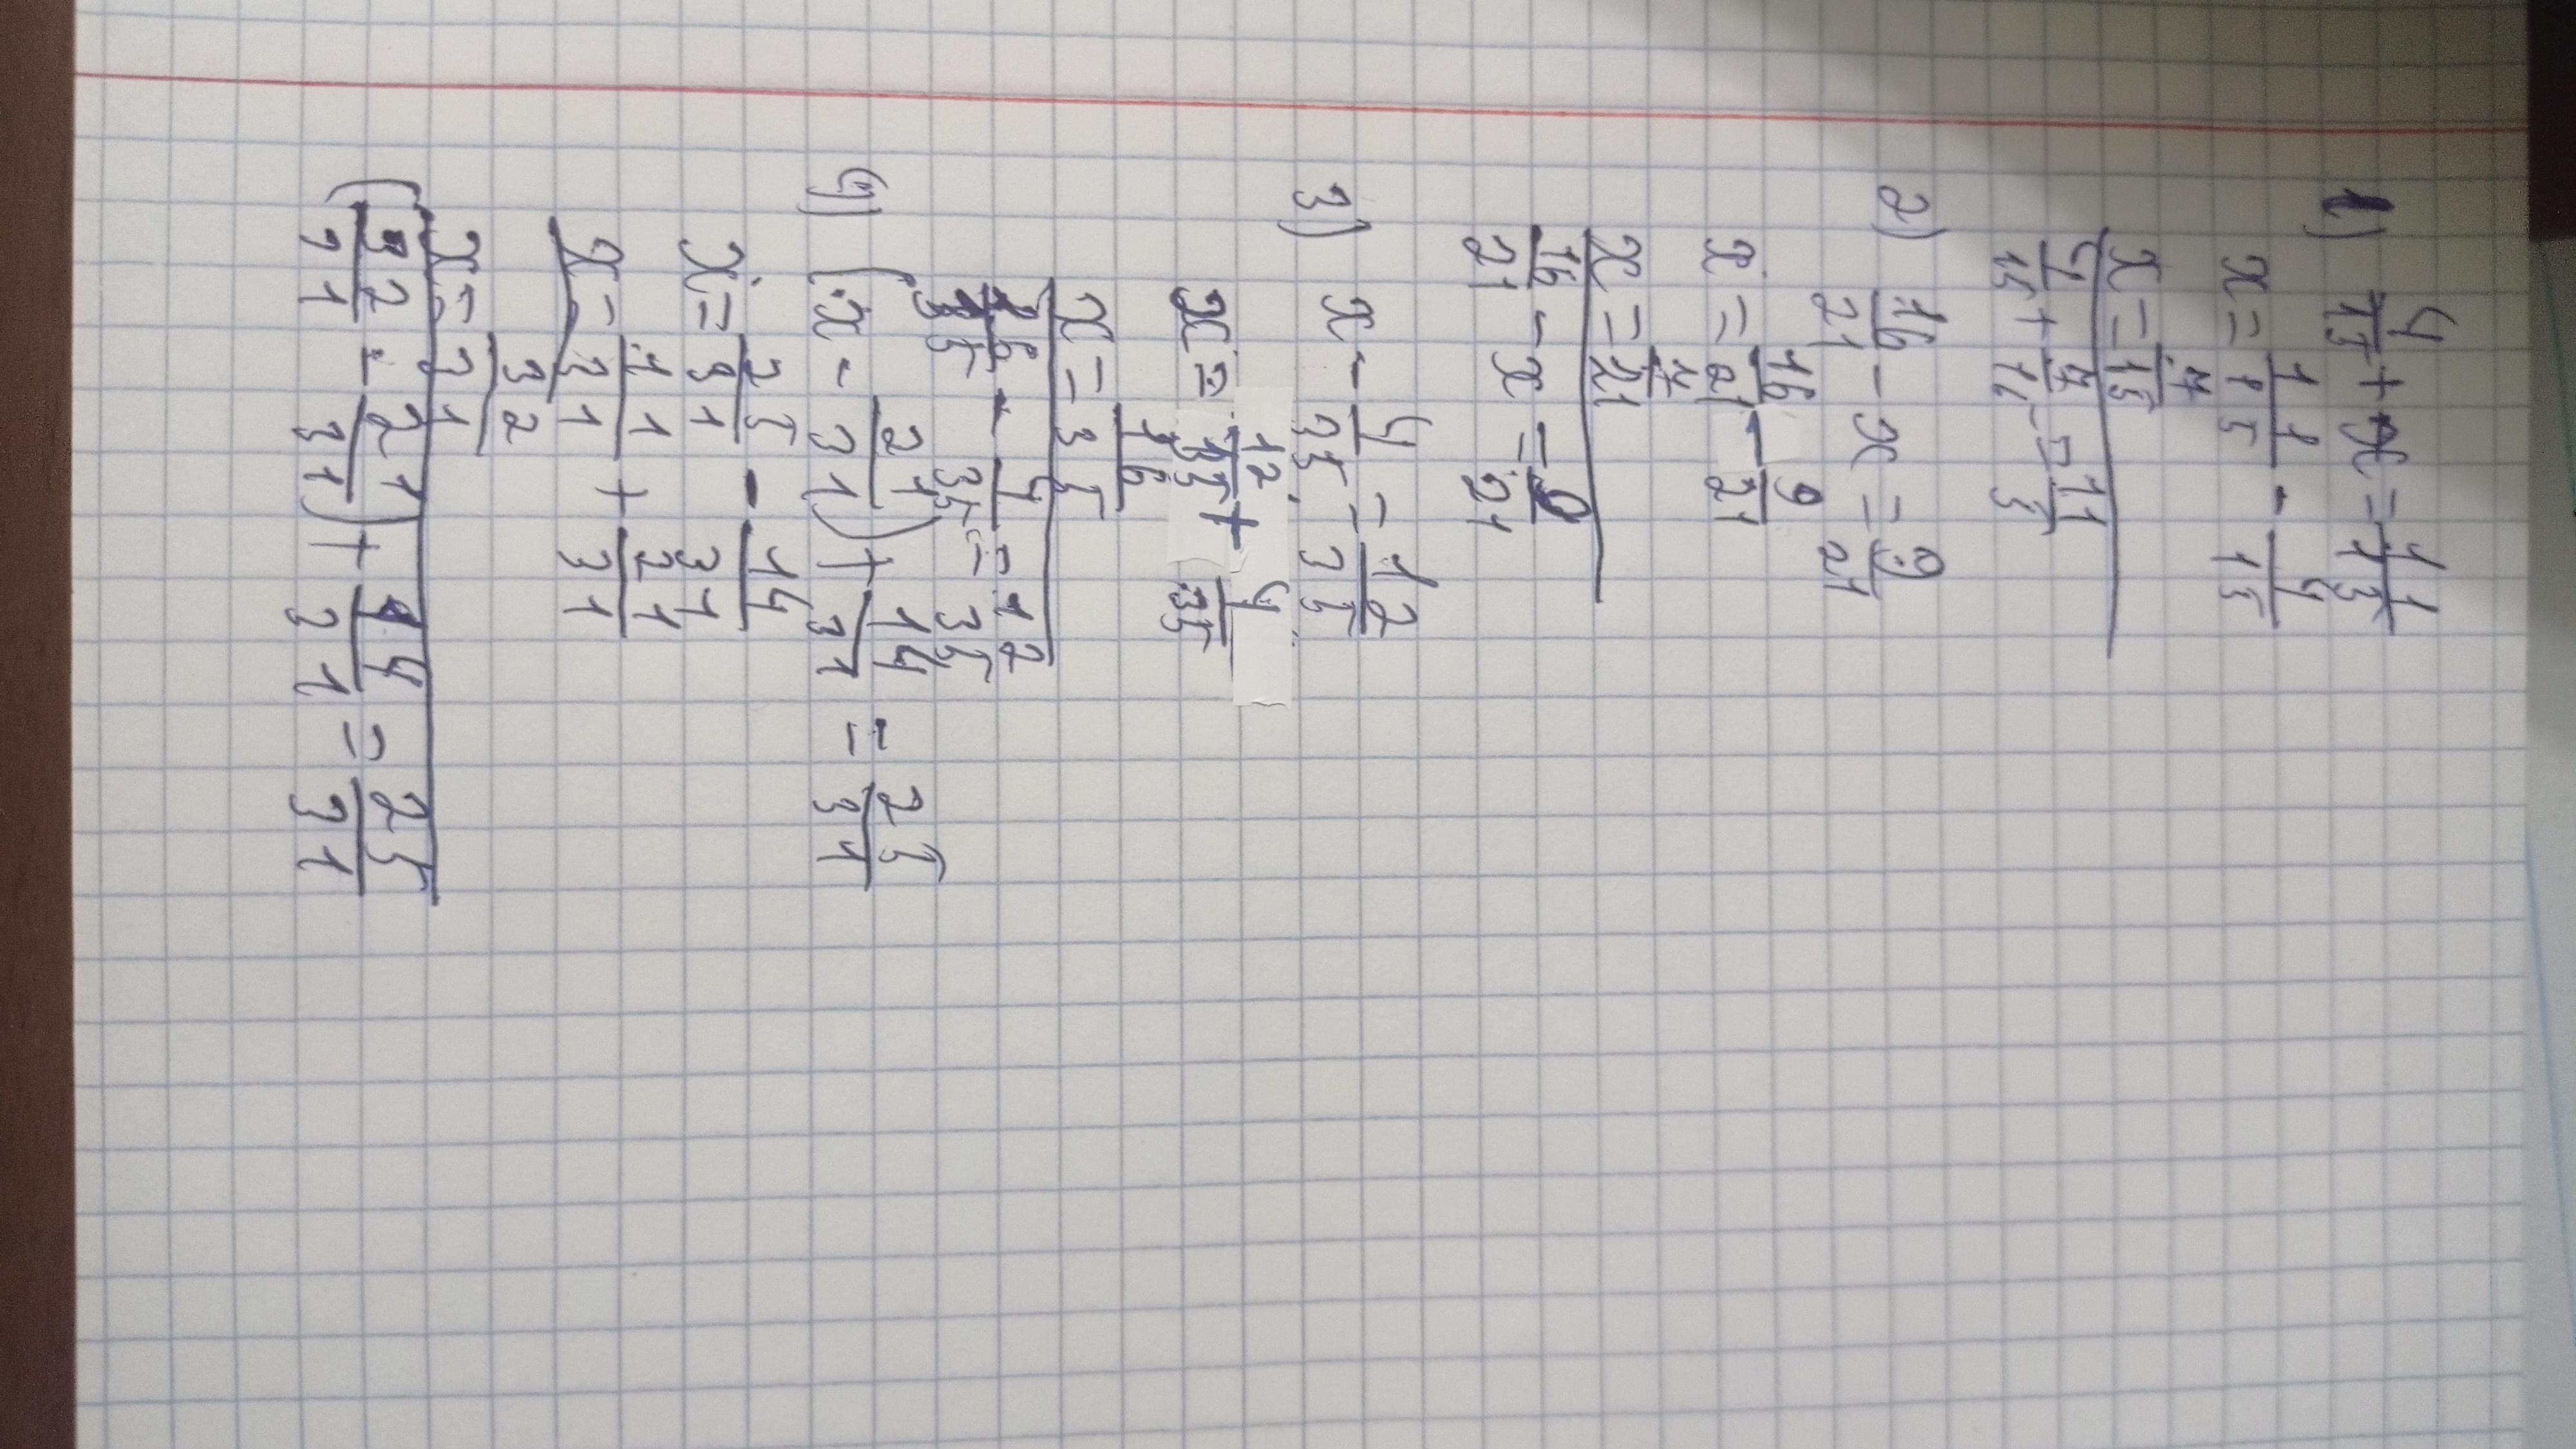 1) 4/15 + x = 11/15
x = 11/15 - 4/15
x = 7/15
4/15 + 7/15 = 11/15
2) 16/21 - x = 9/21
x = 16/21 - 9/21
x = 7/21
16/21 - x = 9/21
3) x - 4/35 = 12/35
x = 12/35 + 4/35
x = 16/35
16/35 - 4/35 = 12/35
4) (x - 21/31) + 14/31 = 25/31
x = 25/31 - 14/31
x = 11/31 + 21/31
x = 32/31
(32/31 - 21/31) + 14/31 = 25/31